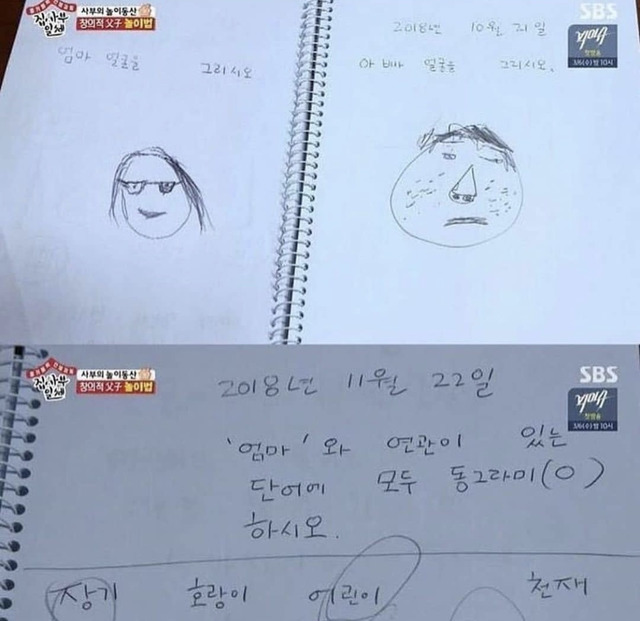 집사부일체
사부의 놀이동산
창의적 父子 놀이법
SBS
첫방송
3/6(수) 밤 10시
엄마 얼굴을 그리시오
2018년 10월 21일
아빠 얼굴을 그리시오.
집사부일체
사부의 놀이동산
창의적 父子 놀이법
SBS
첫방송
3/6(수) 밤 10시
2018년 11월 22일
'엄마'와 연관이 있는
단어에 모두 동그라미(O)
하시오.
장기 호랑이 어린이 천재